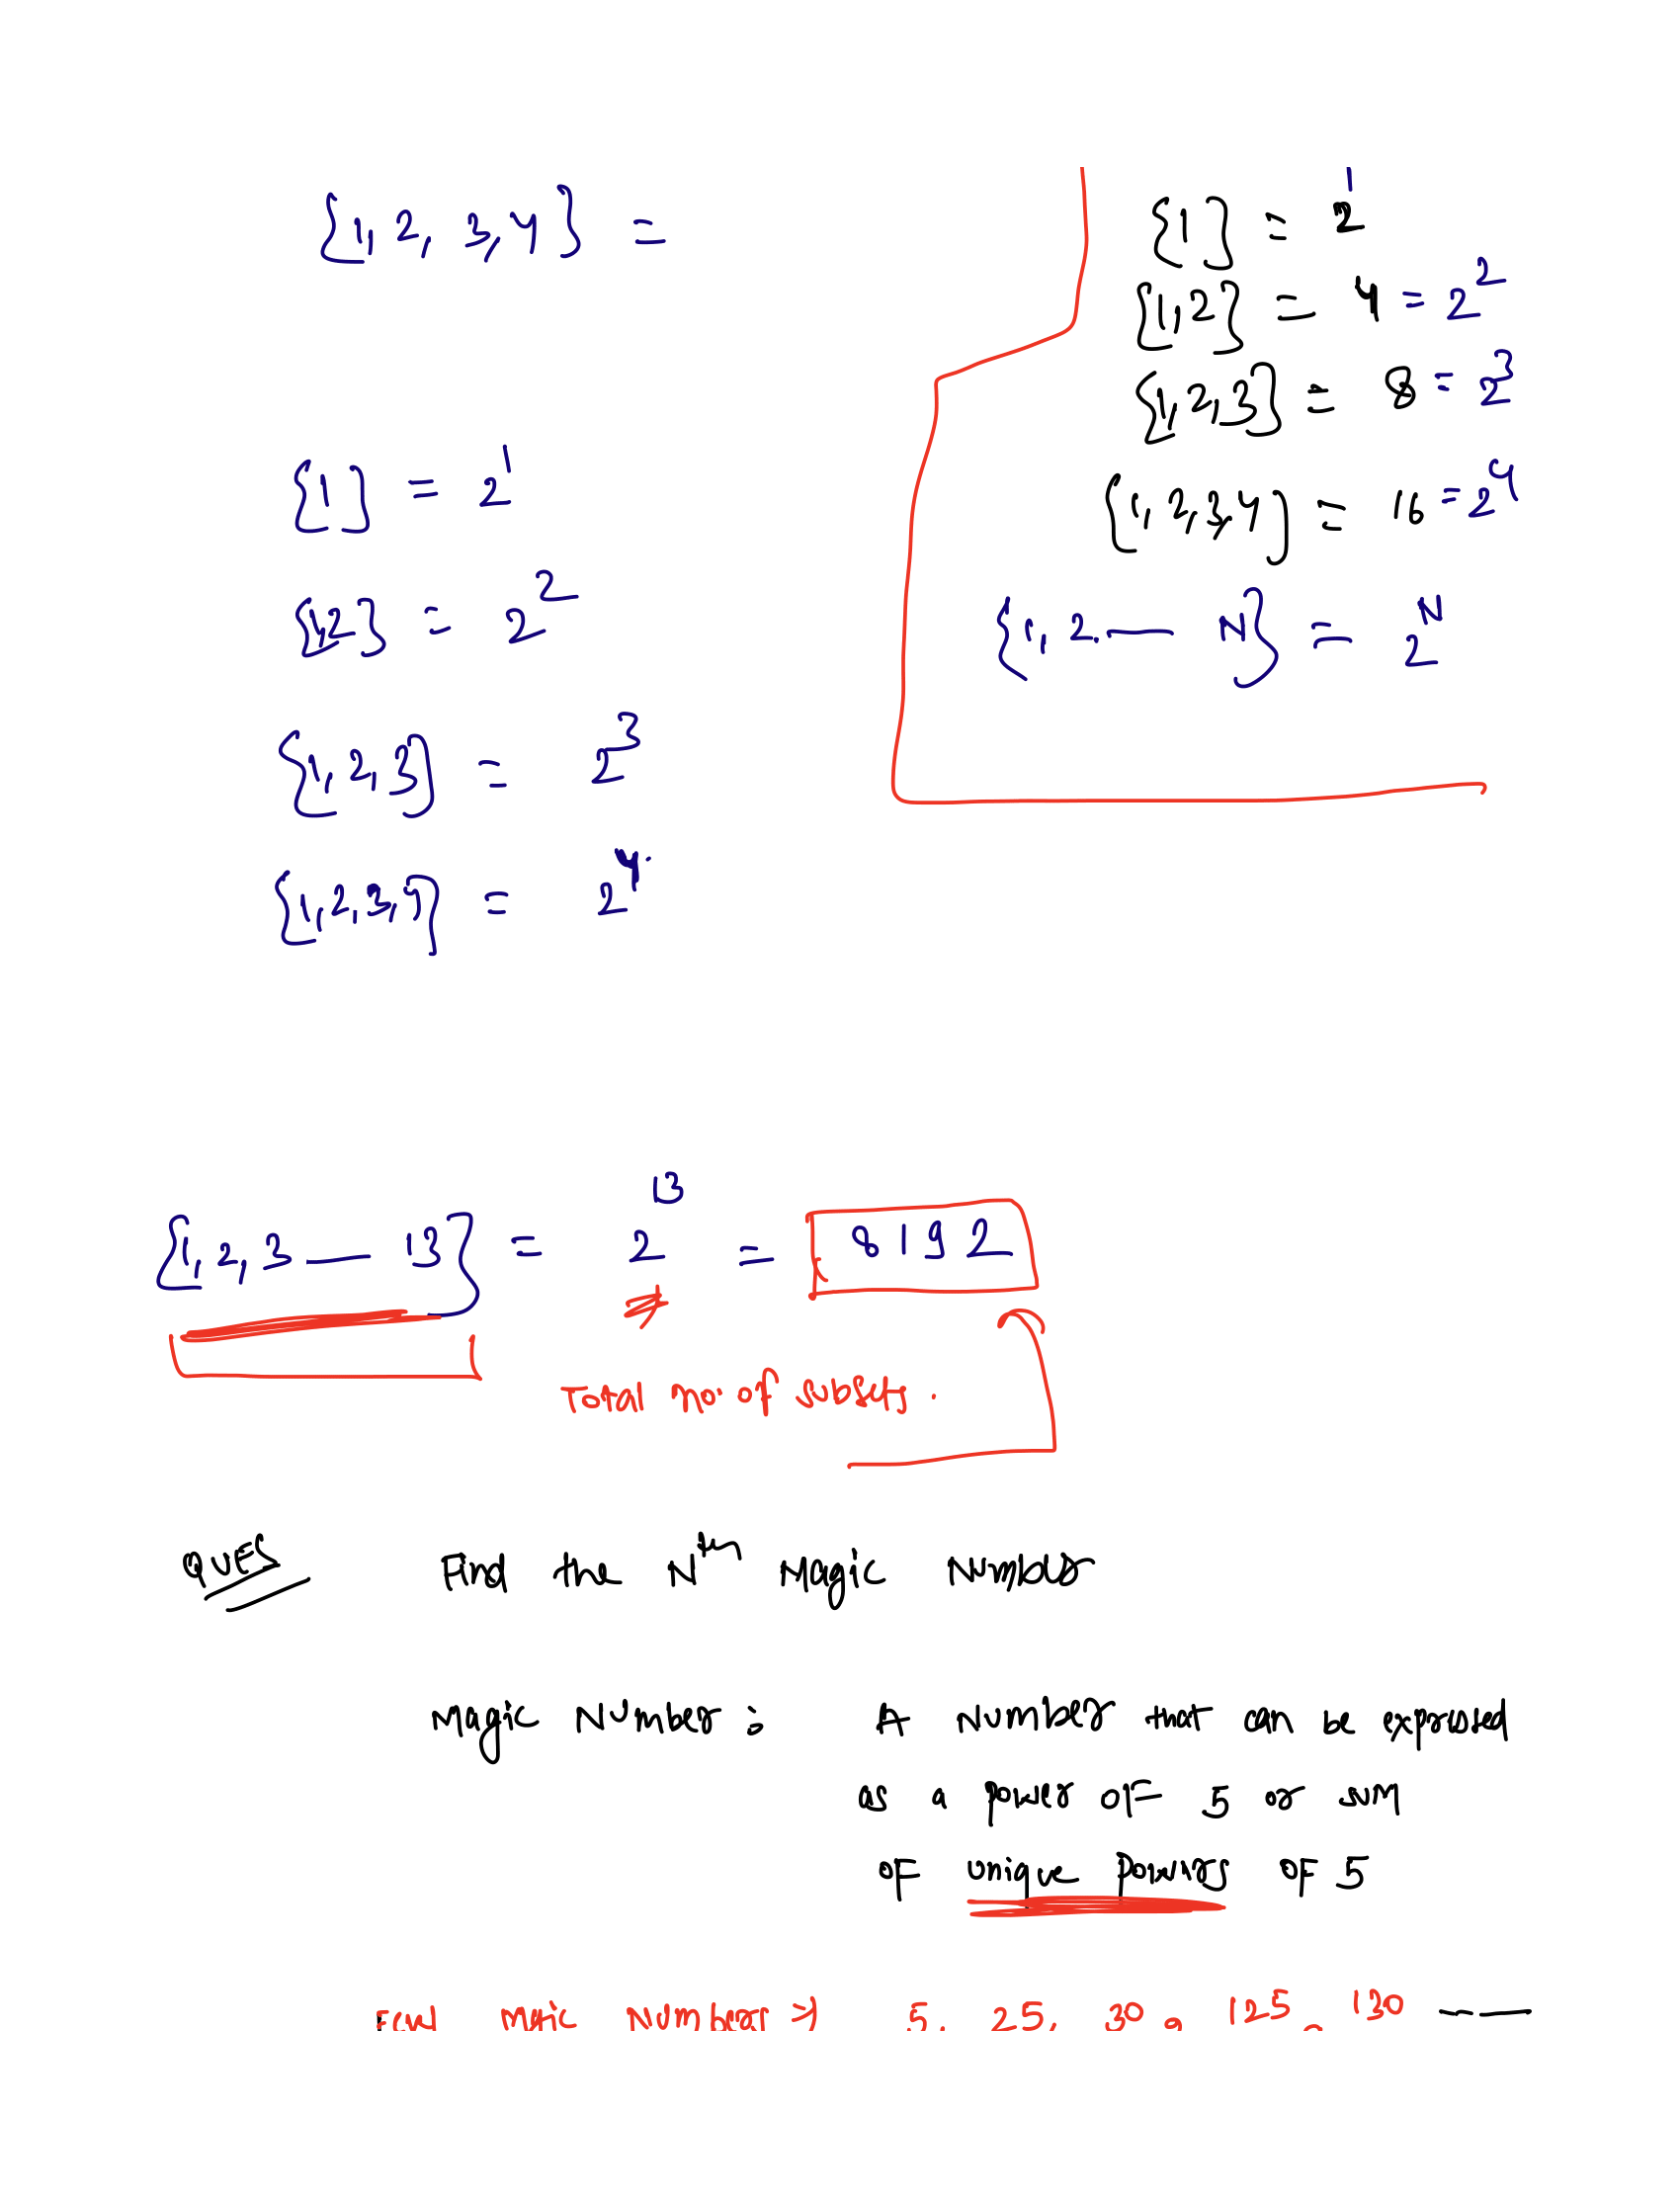 {1, 2, 3, 4} =
{1} = 2^1
{1,2} = 4 = 2^2
{1,2,3} = 8 = 2^3
{1,2,3,4} = 16 = 2^4
{1, 2. — N} = 2^N
{1} = 2^1
{1,2} = 2^2
{1,2,3} = 2^3
{1,2,3,4} = 2^4
{1,2,3 — 13} = 2^13 = 8192
Total no. of subsets.
QUES Find the Nth Magic Number
Magic Number : A Number that can be expressed
as a power of 5 or sum
of unique powers of 5
Few Magic Numbers → 5, 25, 30, 125, 130 ——